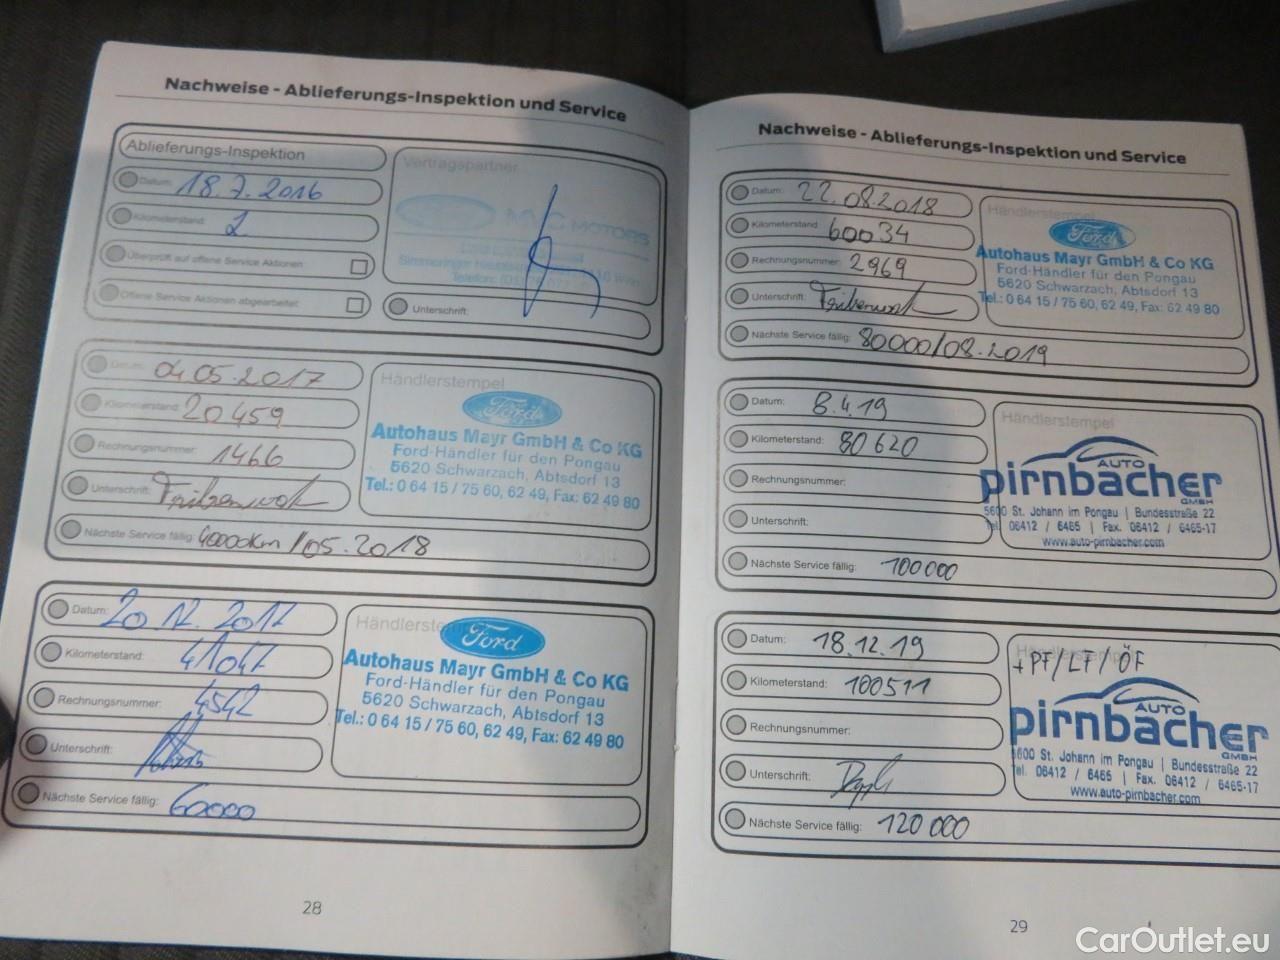 Nachweise - Ablieferungs-Inspektion und Service
Ablieferungs-Inspektion
Datum: 18.7.2016
Kilometerstand: 2
Überprüft auf offene Service Aktionen:
Offene Service Aktionen abgearbeitet:
Vertragspartner
MVC MOTORS
Unterschrift:
Datum: 04.05.2017
Kilometerstand: 20459
Rechnungsnummer: 1466
Unterschrift:
Nächste Service fällig: 40000km/05.2018
Händlerstempel
Ford
Autohaus Mayr GmbH & Co KG
Ford-Händler für den Pongau
5620 Schwarzach, Abtsdorf 13
Tel.: 0 64 15 / 75 60, 62 49, Fax: 62 49 80
Datum: 20.12.2017
Kilometerstand: 41047
Rechnungsnummer: 4542
Unterschrift:
Nächste Service fällig: 60000
Händlerstempel
Ford
Autohaus Mayr GmbH & Co KG
Ford-Händler für den Pongau
5620 Schwarzach, Abtsdorf 13
Tel.: 0 64 15 / 75 60, 62 49, Fax: 62 49 80
28
Nachweise - Ablieferungs-Inspektion und Service
Datum: 22.08.2018
Kilometerstand: 60034
Rechnungsnummer: 2969
Unterschrift:
Nächste Service fällig: 80000/08.2019
Händlerstempel
Ford
Autohaus Mayr GmbH & Co KG
Ford-Händler für den Pongau
5620 Schwarzach, Abtsdorf 13
Tel.: 0 64 15 / 75 60, 62 49, Fax: 62 49 80
Datum: 8.4.19
Kilometerstand: 80620
Rechnungsnummer:
Unterschrift:
Nächste Service fällig: 100000
Händlerstempel
AUTO
pirnbacher
GMBH
5600 St. Johann im Pongau | Bundesstraße 22
Tel. 06412 / 6465 | Fax. 06412 / 6465-17
www.auto-pirnbacher.com
Datum: 18.12.19
Kilometerstand: 100511
Rechnungsnummer:
Unterschrift:
Nächste Service fällig: 120 000
+PF/LF/ÖF
AUTO
pirnbacher
GMBH
5600 St. Johann im Pongau | Bundesstraße 22
Tel. 06412 / 6465 | Fax. 06412 / 6465-17
www.auto-pirnbacher.com
29
CarOutlet.eu